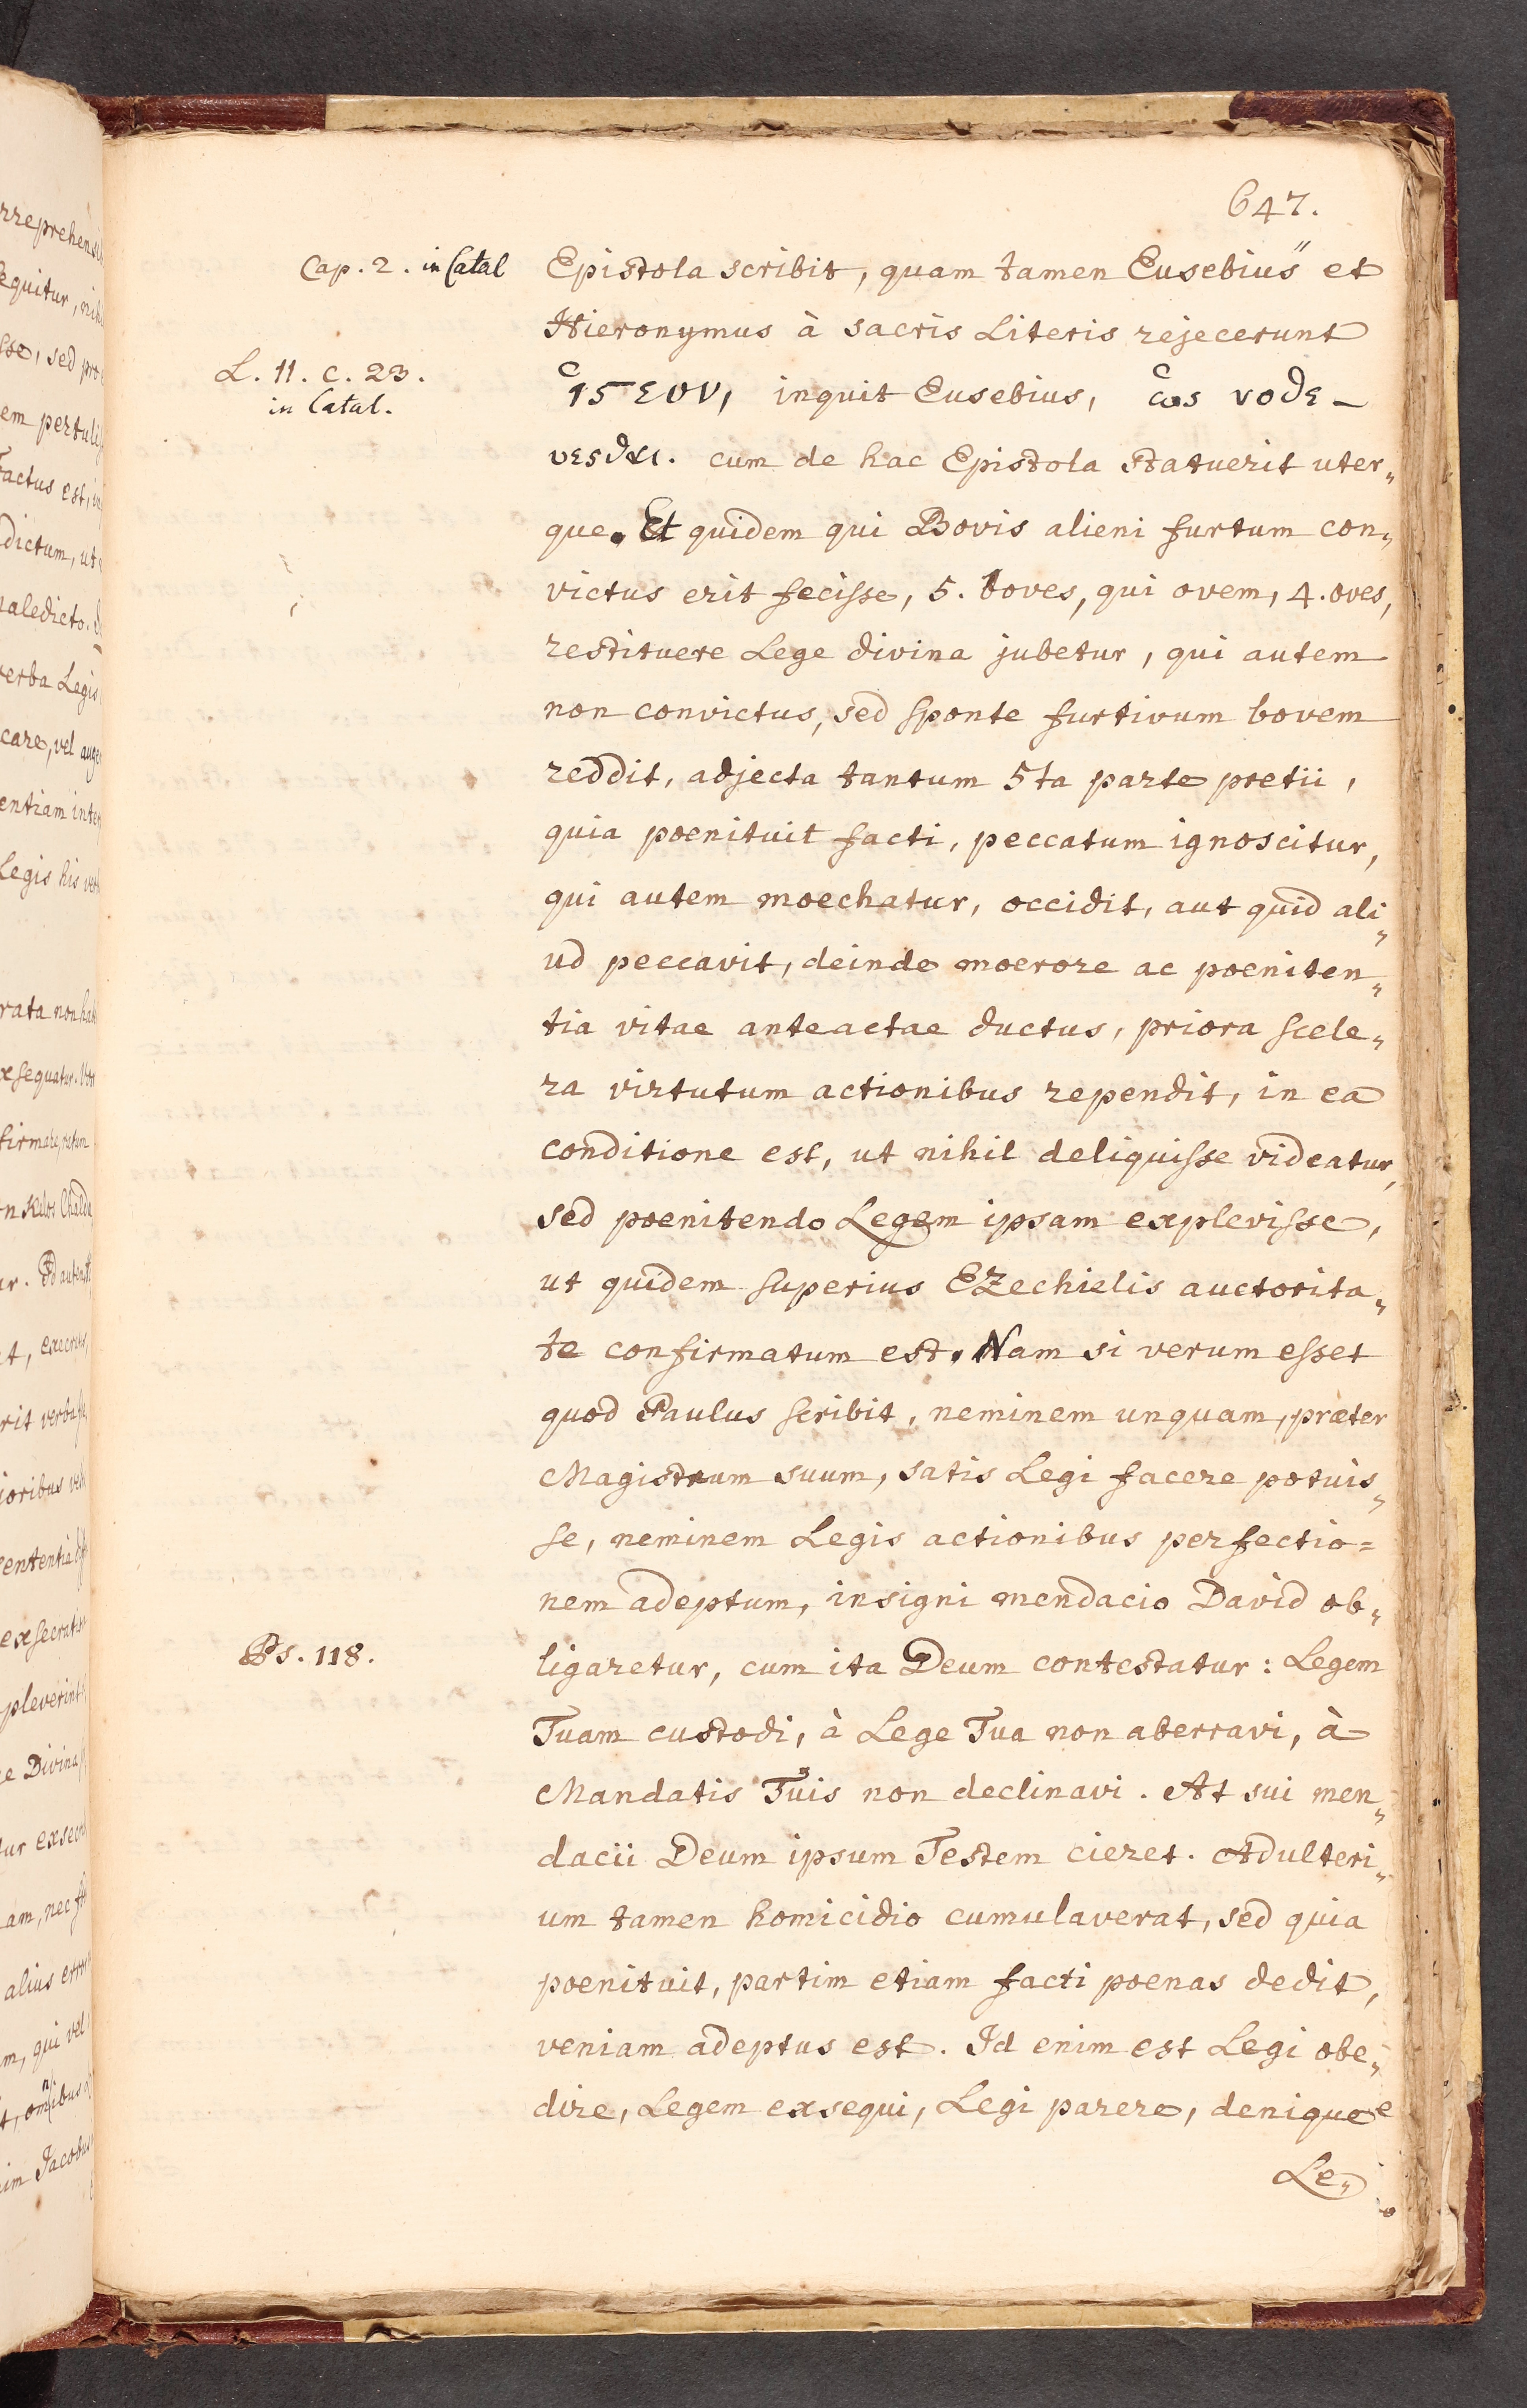 647.
Cap. 2. in Catal
Epistola scribit, quam tamen Eusebius" et
Hieronymus à sacris Literis rejecerunt
L. 11. c. 23.
in Catal.
inquit Eusebius, ὡς νοθε-
cum de hac Epistola statuerit uter„
que. Et quidem qui Bovis alieni furtum con„
victus erit fecisse, 5. boves, qui ovem, 4. oves,
restituere Lege divina jubetur, qui autem
non convictus, sed sponte furtivum bovem
reddit, adjecta tantum 5ta parte pretii,
quia poenituit facti, peccatum ignoscitur,
qui autem moechatur, occidit, aut quid ali„
ud peccavit, deinde moerore ac poeniten„
tia vitae anteactae ductus, priora scele„
ra virtutum actionibus rependit, in ea
conditione est, ut nihil deliquisse videatur,
sed poenitendo Legem ipsam explevisse,
ut quidem superius EZechielis auctorita„
te confirmatum est. Nam si verum esset
quod Paulus scribit, neminem unquam, præter
Magistrum suum, satis Legi facere potuis„
se, neminem Legis actionibus perfectio=
nem adeptum, insigni mendacio David ob„
Ps. 118.
ligaretur, cum ita Deum contestatur: Legem
Tuam custodi, à Lege Tua non aberravi, à
Mandatis Tuis non declinavi. At sui men„
dacii Deum ipsum Testem cieret. Adulteri„
um tamen homicidio cumulaverat, sed quia
poenituit, partim etiam facti poenas dedit,
veniam adeptus est. Id enim est Legi obe„
dire, Legem exsequi, Legi parere, denique
Le„